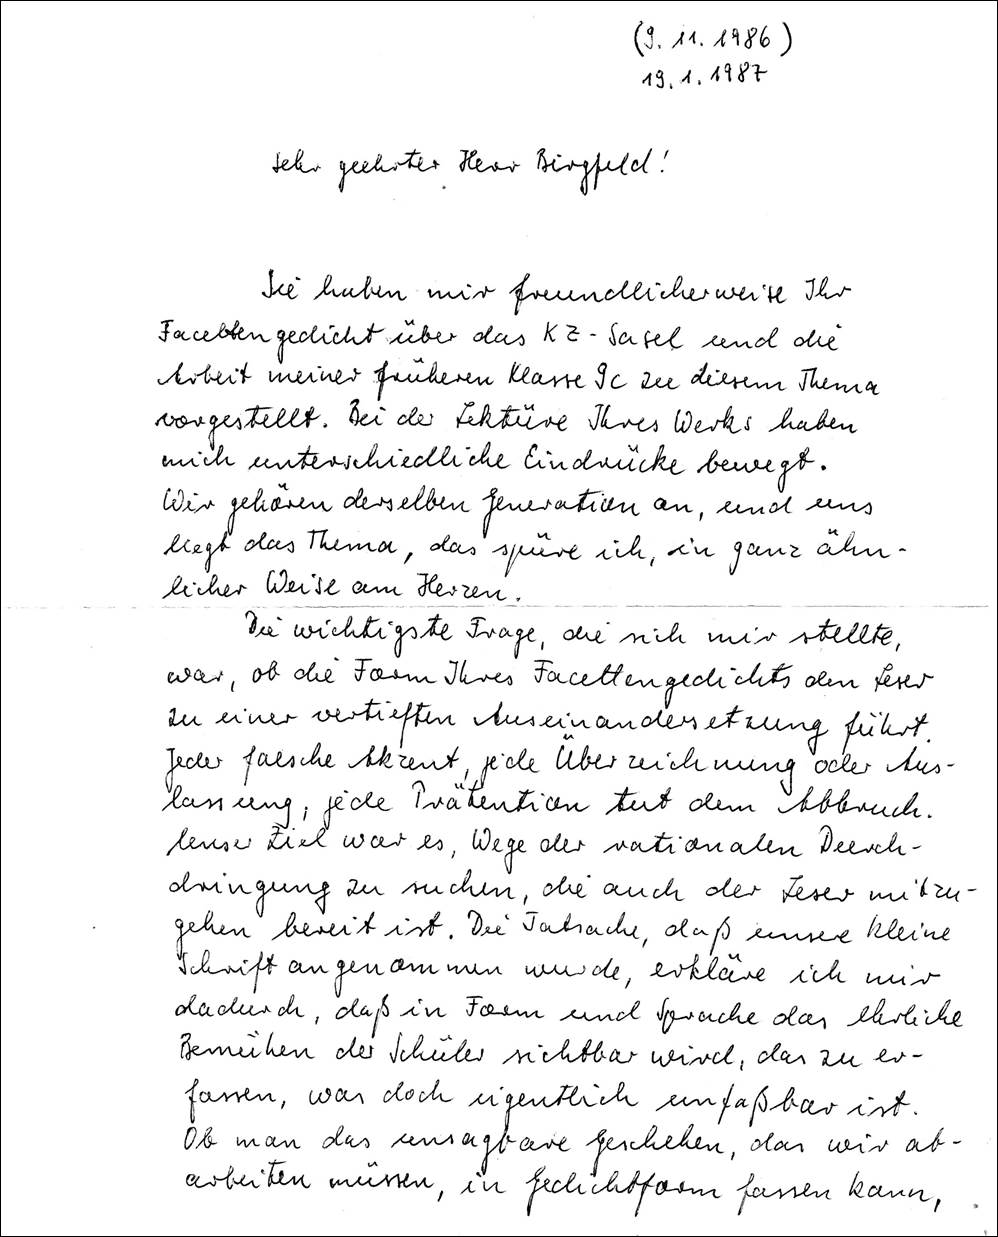 (9. 11. 1986)
19. 1. 1987
Sehr geehrter Herr Birgfeld!
Sie haben mir freundlicherweise Ihr
Facettengedicht über das KZ-Sasel und die
Arbeit meiner früheren Klasse 9c zu diesem Thema
vorgestellt. Bei der Lektüre Ihres Werks haben
mich unterschiedliche Eindrücke bewegt.
Wir gehören derselben Generation an, und uns
liegt das Thema, das spüre ich, in ganz ähn-
licher Weise am Herzen.
Die wichtigste Frage, die sich mir stellte,
war, ob die Form Ihres Facettengedichts den Leser
zu einer vertieften Auseinandersetzung führt.
Jeder falsche Akzent, jede Überzeichnung oder Aus-
lassung, jede Prätention tut dem Abbruch.
Unser Ziel war es, Wege der rationalen Durch-
dringung zu suchen, die auch der Leser mitzu-
gehen bereit ist. Die Tatsache, daß unsere kleine
Schrift angenommen wurde, erkläre ich mir
dadurch, daß in Form und Sprache das ehrliche
Bemühen der Schüler sichtbar wird, das zu er-
fassen, was doch eigentlich unfaßbar ist.
Ob man das unsagbare Geschehen, das wir ab-
arbeiten müssen, in Gedichtform fassen kann,